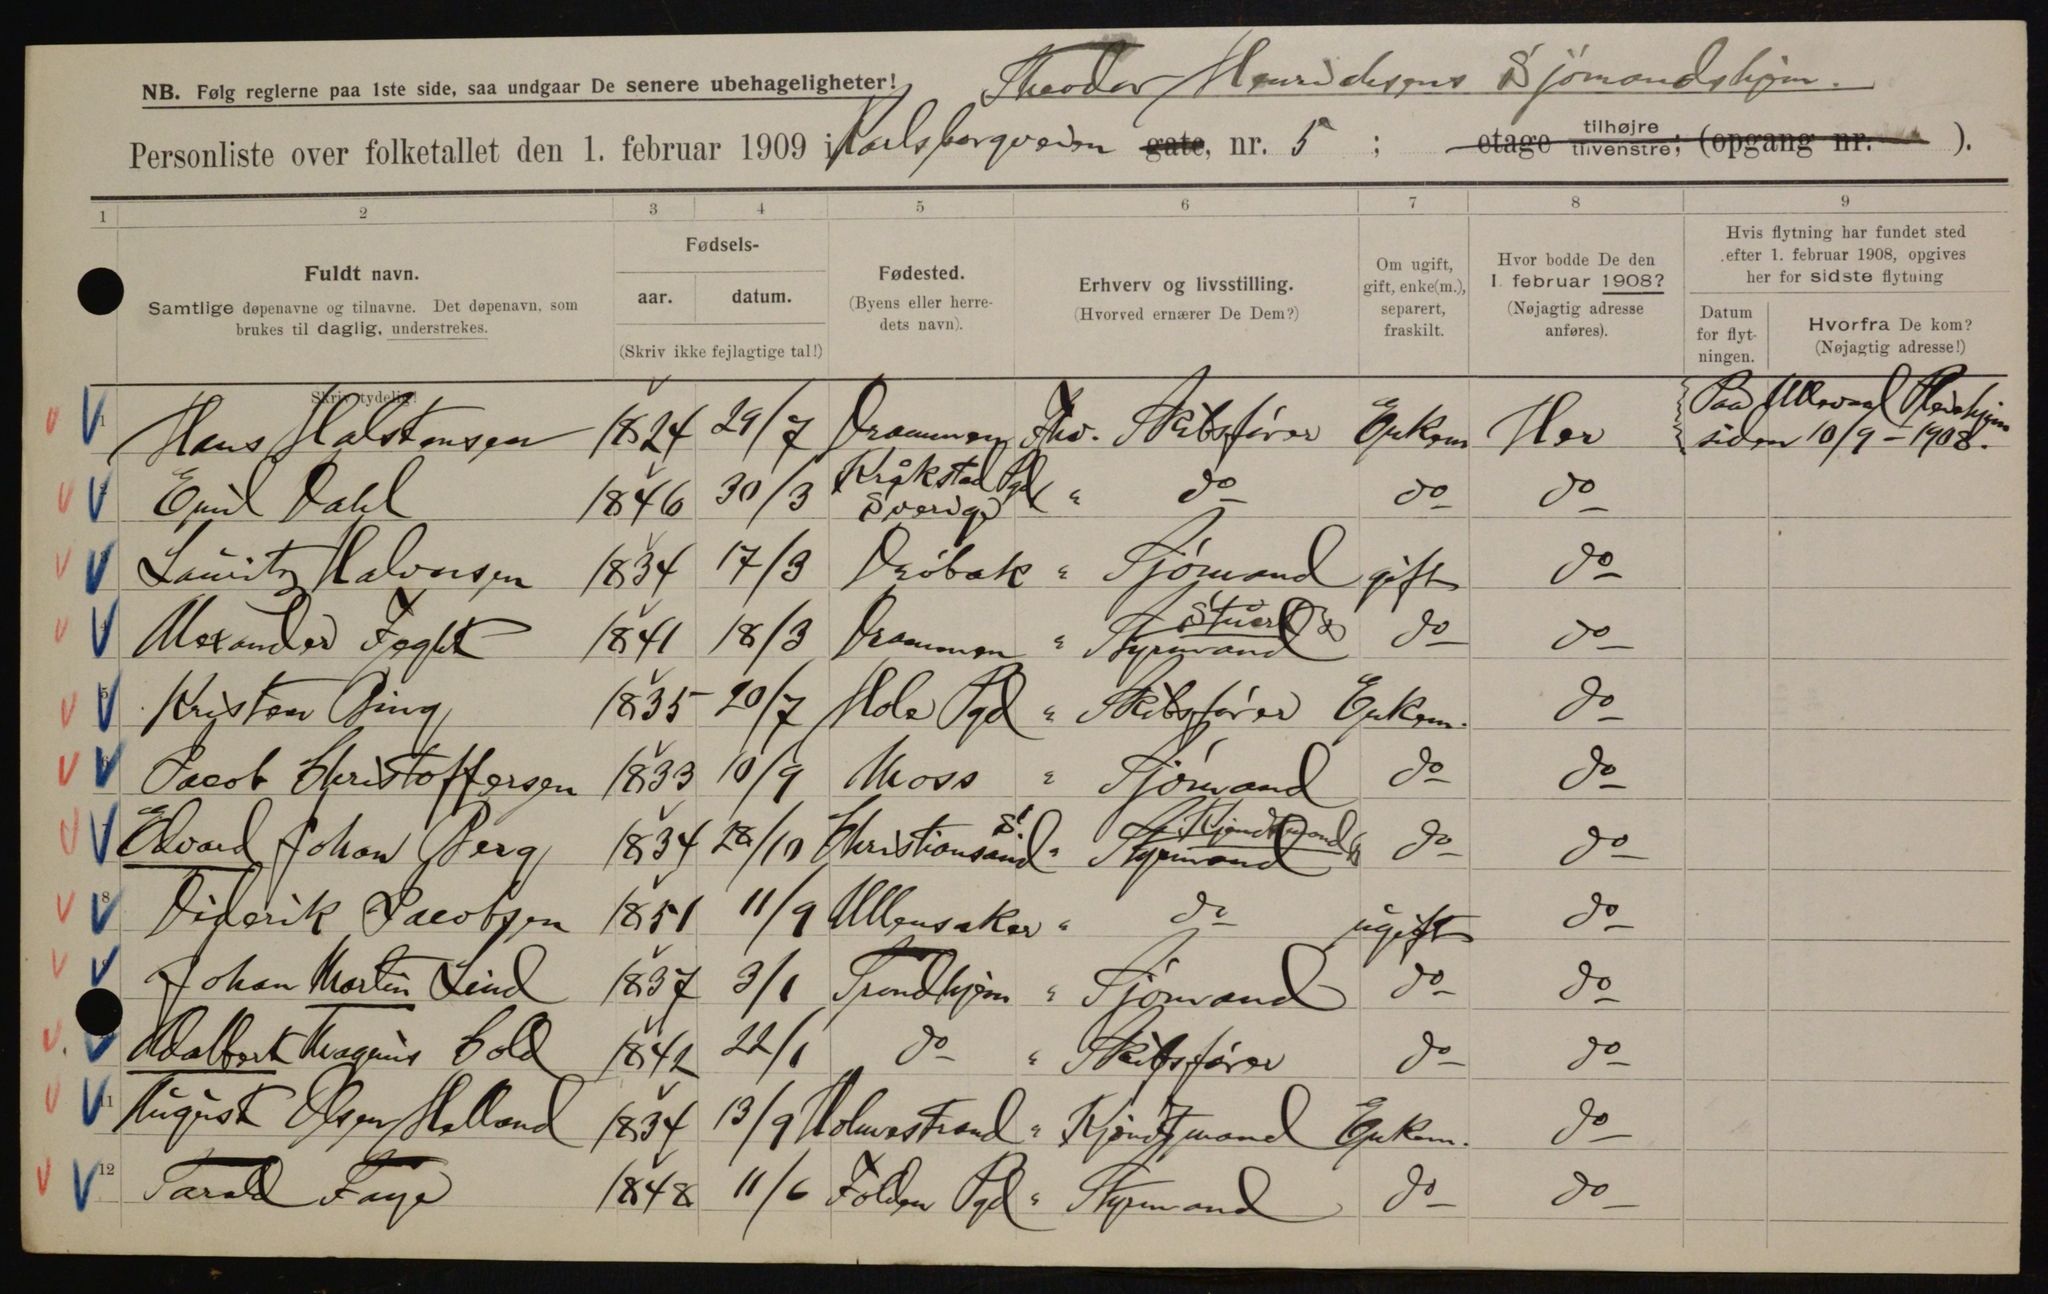 Theodor Henrichsens Sjómandshjem.
NB. Følg reglerne paa 1ste side, saa undgaar De senere ubehageligheter!
Personliste over folketallet den 1. februar 1909 i Karlsborgveien gate, nr. 5 ; etage tilhøjre tilvenstre; (opgang nr. ).
1 2 3 4 5 6 7 8 9
Fuldt navn.
Samtlige døpenavne og tilnavne. Det døpenavn, som
brukes til daglig, understrekes.
Skriv tydelig!
Fødsels-
aar. datum.
(Skriv ikke fejlagtige tal!)
Fødested.
(Byens eller herre-
dets navn).
Erhverv og livsstilling.
(Hvorved ernærer De Dem?)
Om ugift,
gift, enke(m.),
separert,
fraskilt.
Hvor bodde De den
1. februar 1908?
(Nøjagtig adresse
anføres).
Hvis flytning har fundet sted
efter 1. februar 1908, opgives
her for sidste flytning
Datum
for flyt-
ningen.
Hvorfra De kom?
(Nøjagtig adresse!)
1 Hans Halstensen 1824 29/7 Drammen Fhv. Skibsfører Enkem Her Paa Ullevaal Pleiehjem siden 10/9 - 1908.
2 Emil Dahl 1846 30/3 Kråkstad Pgd Sverige " do do do
3 Lauritz Halvorsen 1834 17/3 Drøbak " Sjómand gift do
4 Alexander Feght 1841 18/3 Drammen " Styrmand Stuert do do
5 Kristen Bing 1835 20/7 Hole Pgd " Skibsfører Enkem. do
6 Jacob Christoffersen 1833 10/9 Moss " Sjómand do do
7 Edvard Johan Berg 1834 28/10 Christianssand " Styrmand Kjendtmand do do
8 Diderik Jacobsen 1851 11/9 Ullensaker " do ugift do
9 Johan Martin Lind 1837 3/1 Trondhjem " Sjómand do do
Adalbert Magnus Cold 1842 22/1 do " Skibsfører do do
11 August Olsen Holland 1834 13/9 Holmestrand " Kjendtmand Enkem. do
12 Tarald Faye 1848 11/6 Folden Pgd " Styrmand do do